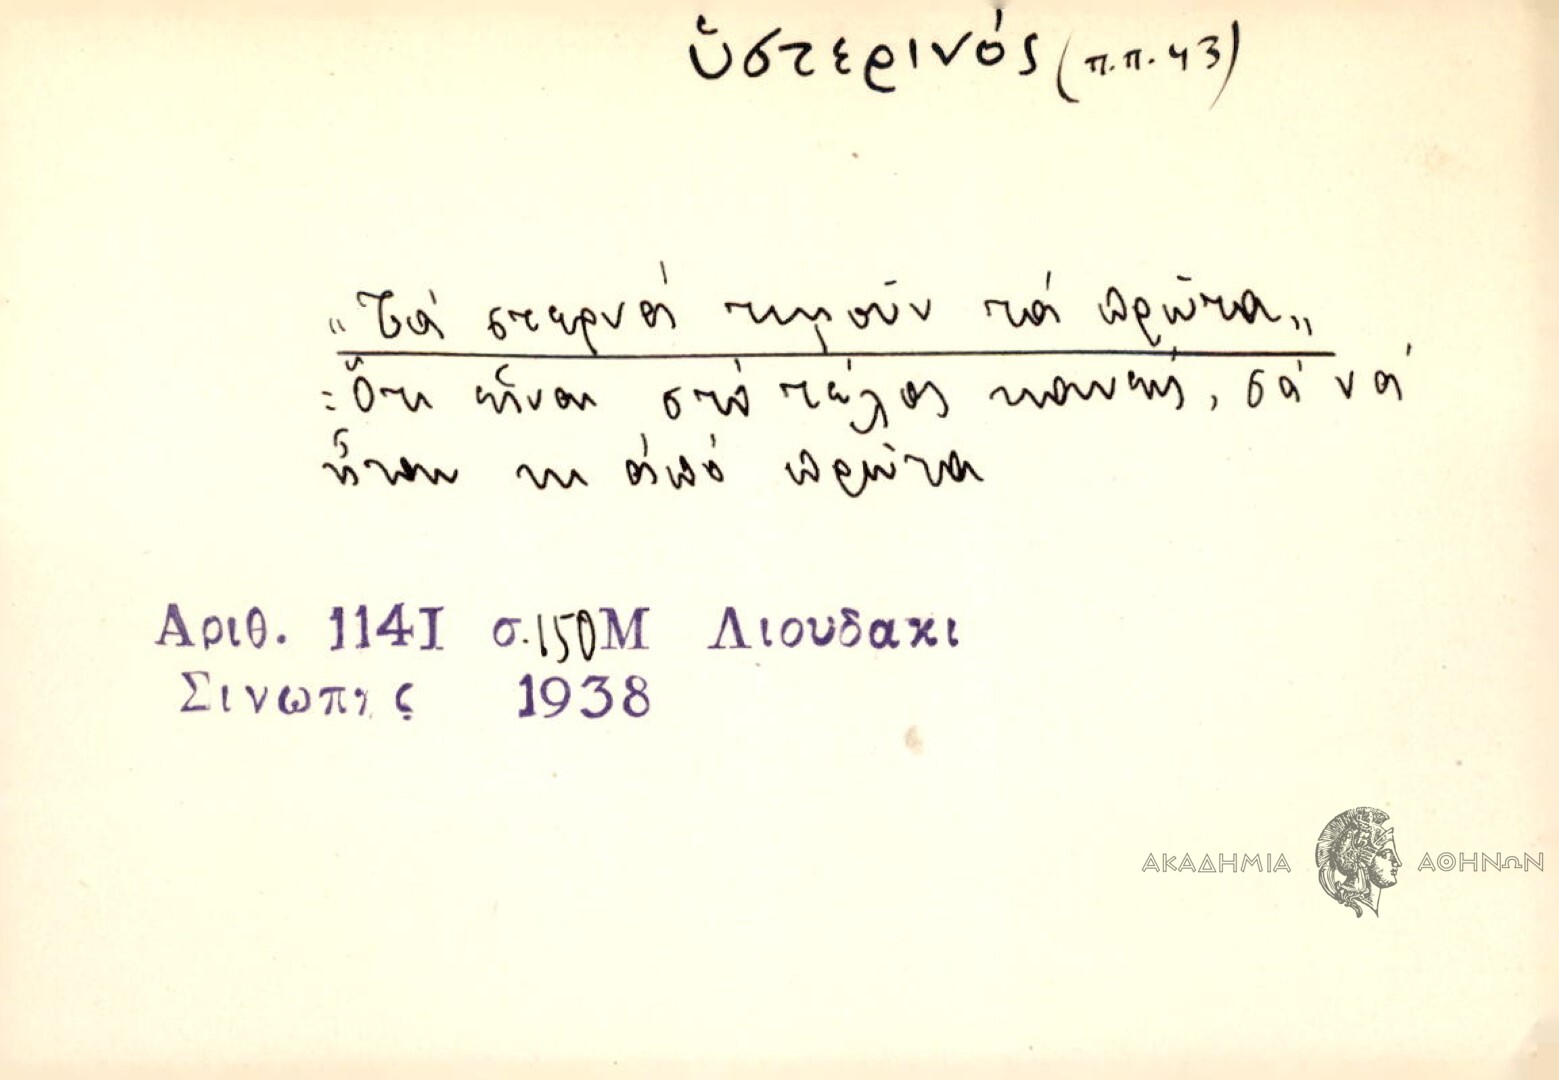 ὑστερινός (π.π. 43)
"Τά στερνά τιμοῦν τά πρῶτα"
: Ὅτι εἶναι στό τέλος κανείς, σά νά
ἦταν κι ἀπό πρῶτα
Αριθ. 1141 σ. 150 Μ Λιουδακι
Σινωπης 1938
ΑΚΑΔΗΜΙΑ ΑΘΗΝΩΝ